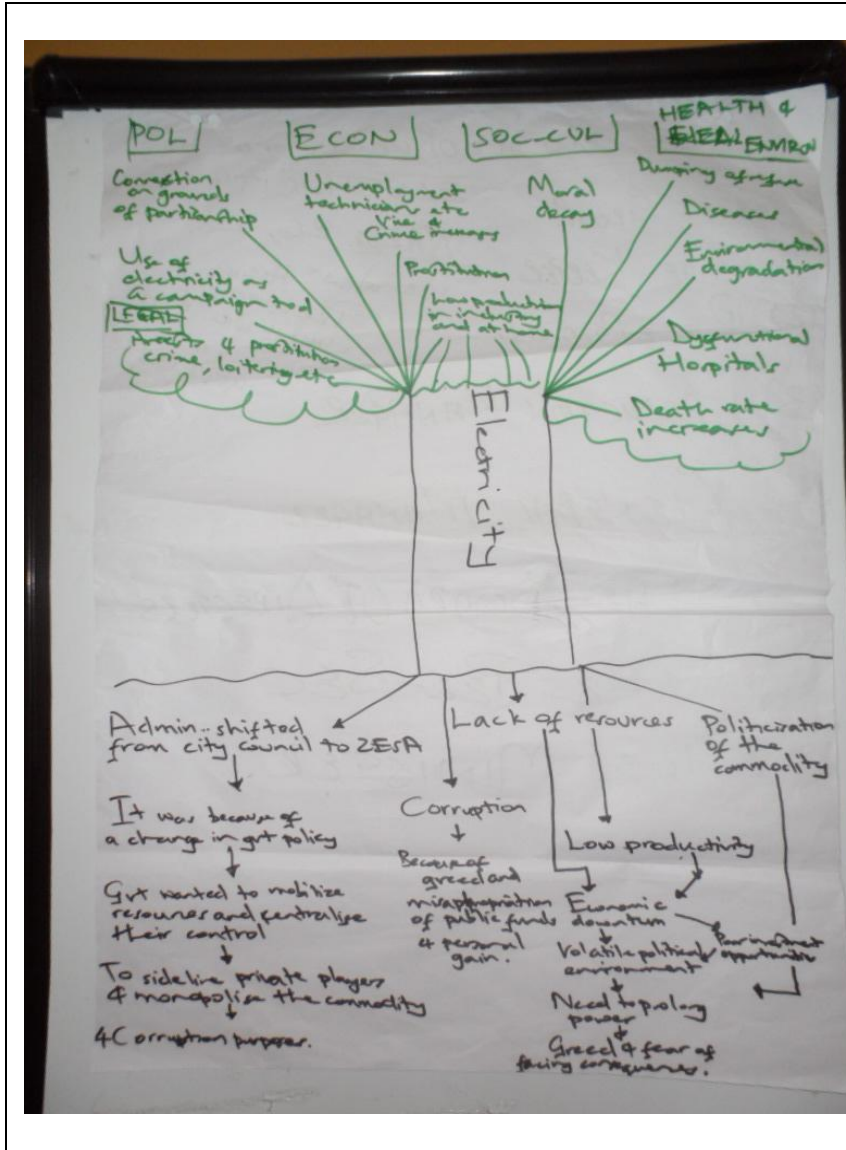 POL
ECON
SOC-CUL
HEALTH &
ENVIRON
Connection
on grounds
of partisanship
Use of
electricity as
a campaign tool
LEGAL
Arrests 4 prostitution
crime, loitering etc
Unemployment
technicians etc
Vice &
Crime increases
Prostitution
Low production
in industry
and at home
Moral
decay
Dumping of refuse
Diseases
Environmental
degradation
Dysfunctional
Hospitals
Death rate
increases
Electricity
Admin.. shifted
from city council to ZESA
It was because of
a change in gvt policy
Gvt wanted to mobilize
resources and centralise
their control
To sideline private players
& monopolise the commodity
4 Corruption purposes.
Corruption
Because of
greed and
misappropriation
of public funds
& personal
gain.
Lack of resources
Low productivity
Economic
downturn
Volatile political
environment
Need to prolong
power
Greed & fear of
facing consequences.
Politicization
of the
commodity
Poor investment
opportunities